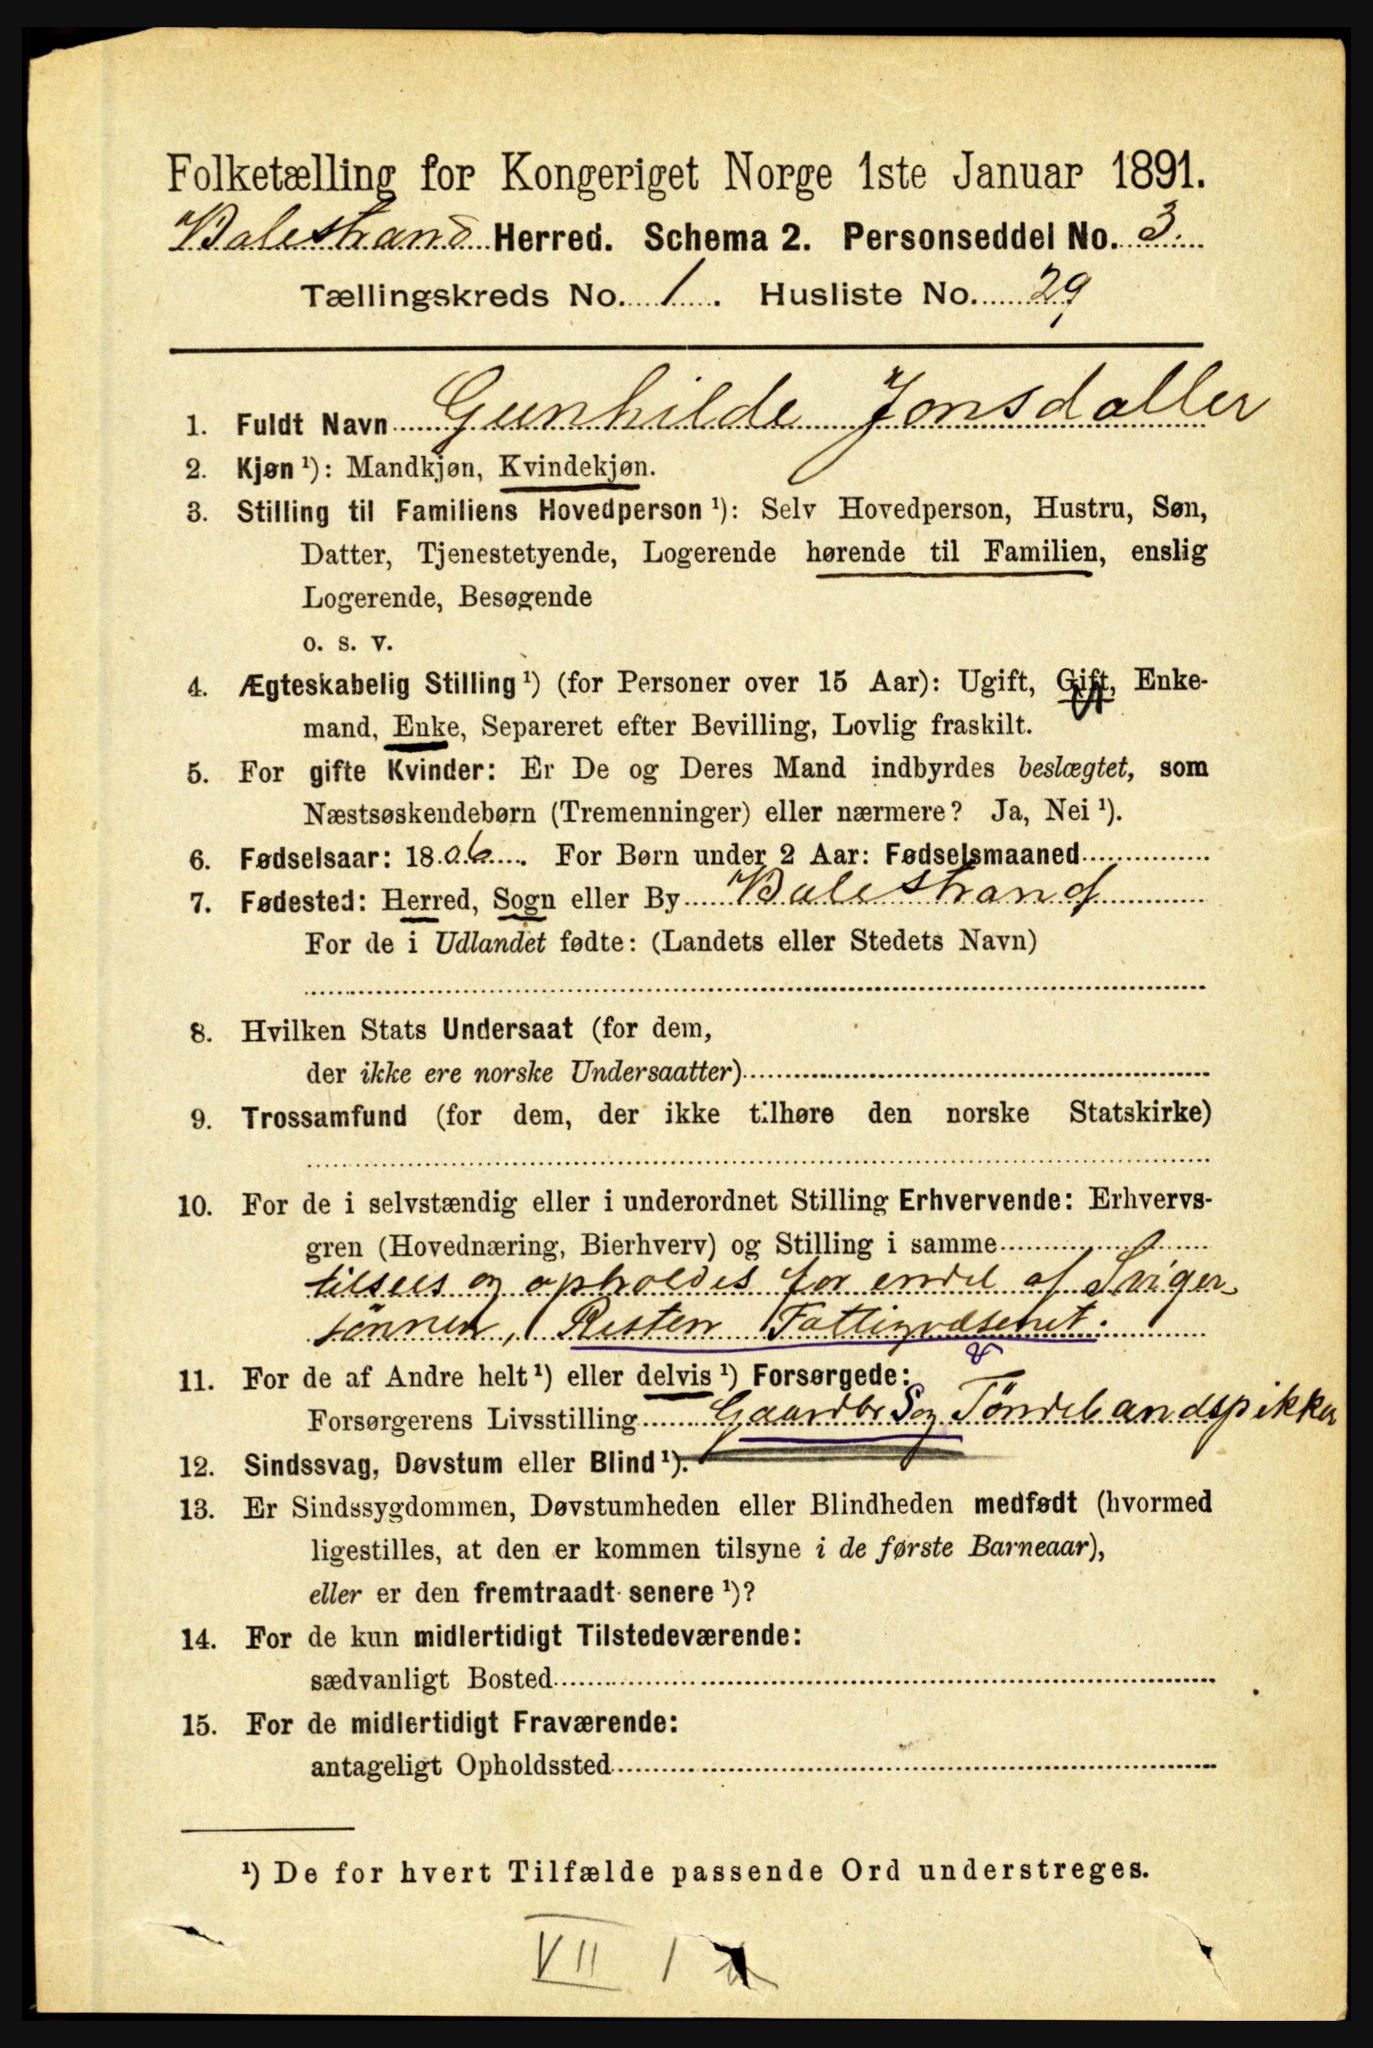 Folketælling for Kongeriget Norge 1ste Januar 1891.
Balestrand Herred. Schema 2. Personseddel No. 3.
Tællingskreds No. 1. Husliste No. 29
1. Fuldt Navn Gunhilde Jonsdatter
2. Kjøn ¹): Mandkjøn, Kvindekjøn.
3. Stilling til Familiens Hovedperson ¹): Selv Hovedperson, Hustru, Søn,
Datter, Tjenestetyende, Logerende hørende til Familien, enslig
Logerende, Besøgende
o. s. v.
4. Ægteskabelig Stilling ¹) (for Personer over 15 Aar): Ugift, Gift, Enke-
mand, Enke, Separeret efter Bevilling, Lovlig fraskilt.
5. For gifte Kvinder: Er De og Deres Mand indbyrdes beslægtet, som
Næstsøskendebørn (Tremenninger) eller nærmere? Ja, Nei ¹).
6. Fødselsaar: 1806. For Børn under 2 Aar: Fødselsmaaned
7. Fødested: Herred, Sogn eller By Balestrand
For de i Udlandet fødte: (Landets eller Stedets Navn)
8. Hvilken Stats Undersaat (for dem,
der ikke ere norske Undersaatter)
9. Trossamfund (for dem, der ikke tilhøre den norske Statskirke)
10. For de i selvstændig eller i underordnet Stilling Erhvervende: Erhvervs-
gren (Hovednæring, Bierhverv) og Stilling i samme
tilsees og opholdes for endel af Sviger-
sønnen, Resten Fattigvæsenet.
11. For de af Andre helt ¹) eller delvis ¹) Forsørgede:
Forsørgerens Livsstilling Gaardbr S og Töndebandspikker
12. Sindssvag, Døvstum eller Blind ¹).
13. Er Sindssygdommen, Døvstumheden eller Blindheden medfødt (hvormed
ligestilles, at den er kommen tilsyne i de første Barneaar),
eller er den fremtraadt senere ¹)?
14. For de kun midlertidigt Tilstedeværende:
sædvanligt Bosted
15. For de midlertidigt Fraværende:
antageligt Opholdssted
¹) De for hvert Tilfælde passende Ord understreges.
VII 1